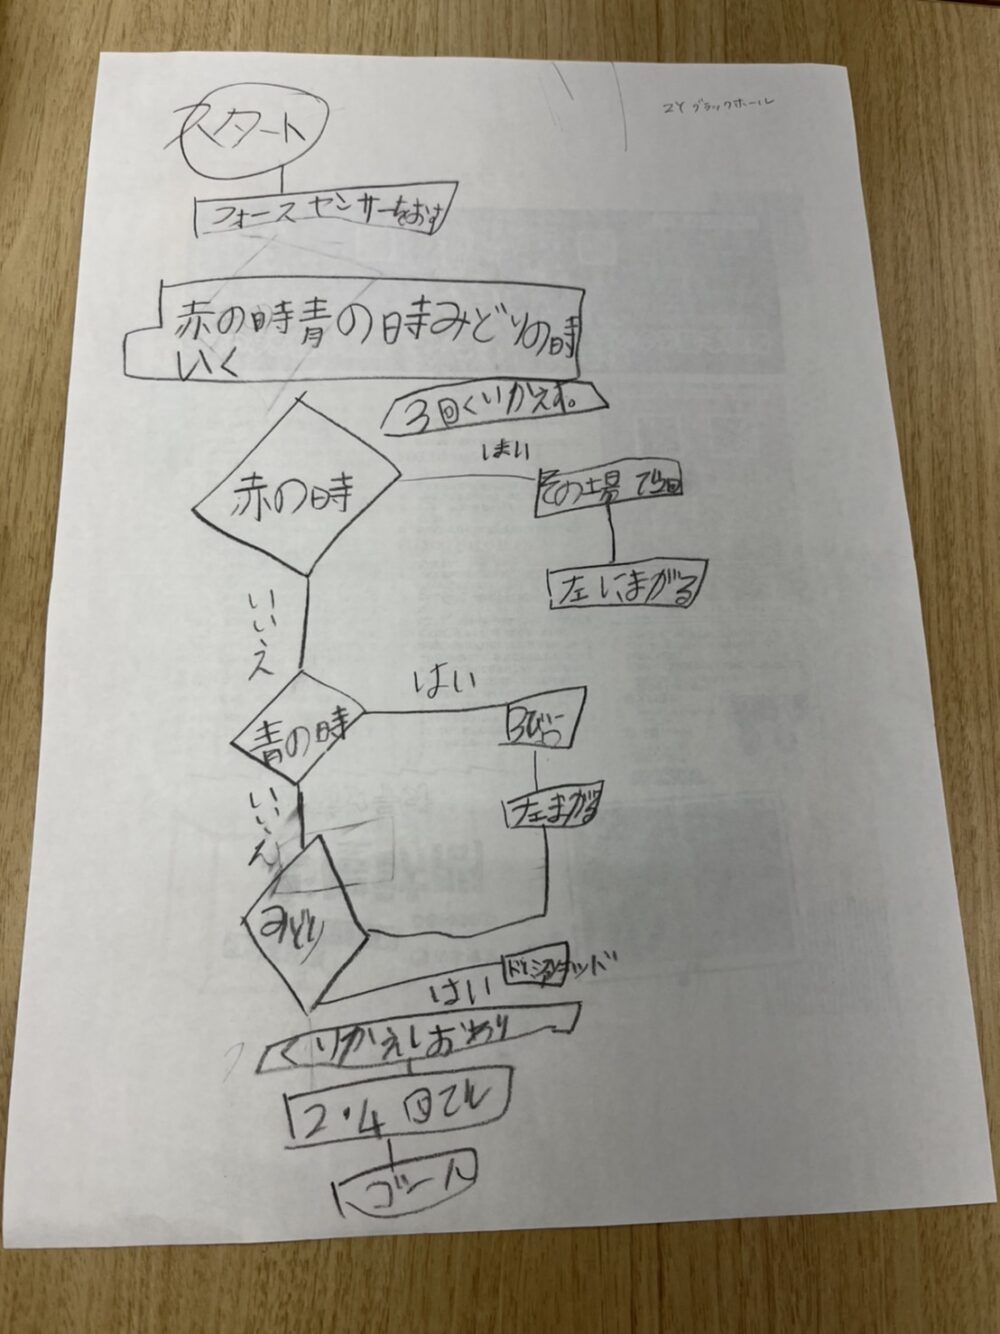 ZYブラックホール
スタート
フォースセンサーをおす
赤の時青の時みどりの時
いく
3回くりかえす。
はい
赤の時
その場で
左にまがる
いいえ
はい
青の時
左まがる
いいえ
みどり
はい
くりかえしおわり
2.4回
ゴール